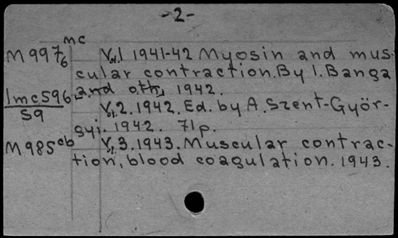 -2-
mc
M997/6 V.1 1941-42 Myosin and mus-
cular contraction. By I. Banga
1mc596 and oth. 1942.
59 V.2. 1942. Ed. by A. Szent-Györ-
gyi. 1942. 71p.
M985cb V.3. 1943. Muscular contrac-
tion, blood coagulation. 1943.